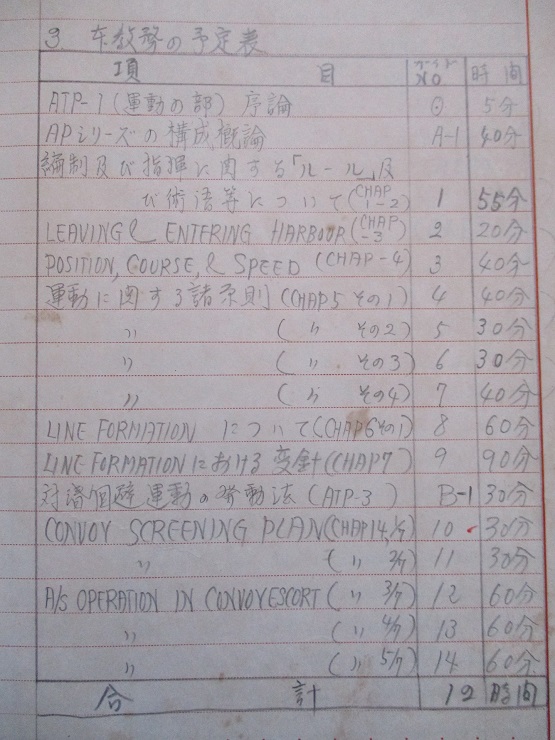 3 本教務の予定表
項 目 ガイド NO 時間
ATP-1(運動の部)序論 0 5分
APシリーズの構成概論 A-1 40分
編制及び指揮に関する「ルール」及
び術語等について(CHAP 1-2) 1 55分
LEAVING & ENTERING HARBOUR(CHAP -3) 2 20分
POSITION, COURSE, & SPEED (CHAP-4) 3 40分
運動に関する諸原則(CHAP5 その1) 4 40分
〃 (〃 その2) 5 30分
〃 (〃 その3) 6 30分
〃 (〃 その4) 7 40分
LINE FORMATION について(CHAP6その1) 8 60分
LINE FORMATIONにおける変針(CHAP7) 9 90分
対潜回避運動の発動法(ATP-3) B-1 30分
CONVOY SCREENING PLAN(CHAP14,1/7) 10 30分
〃 (〃 2/7) 11 30分
A/S OPERATION IN CONVOY ESCORT(〃 3/7) 12 60分
〃 (〃 4/7) 13 60分
〃 (〃 5/7) 14 60分
合 計 12 時間